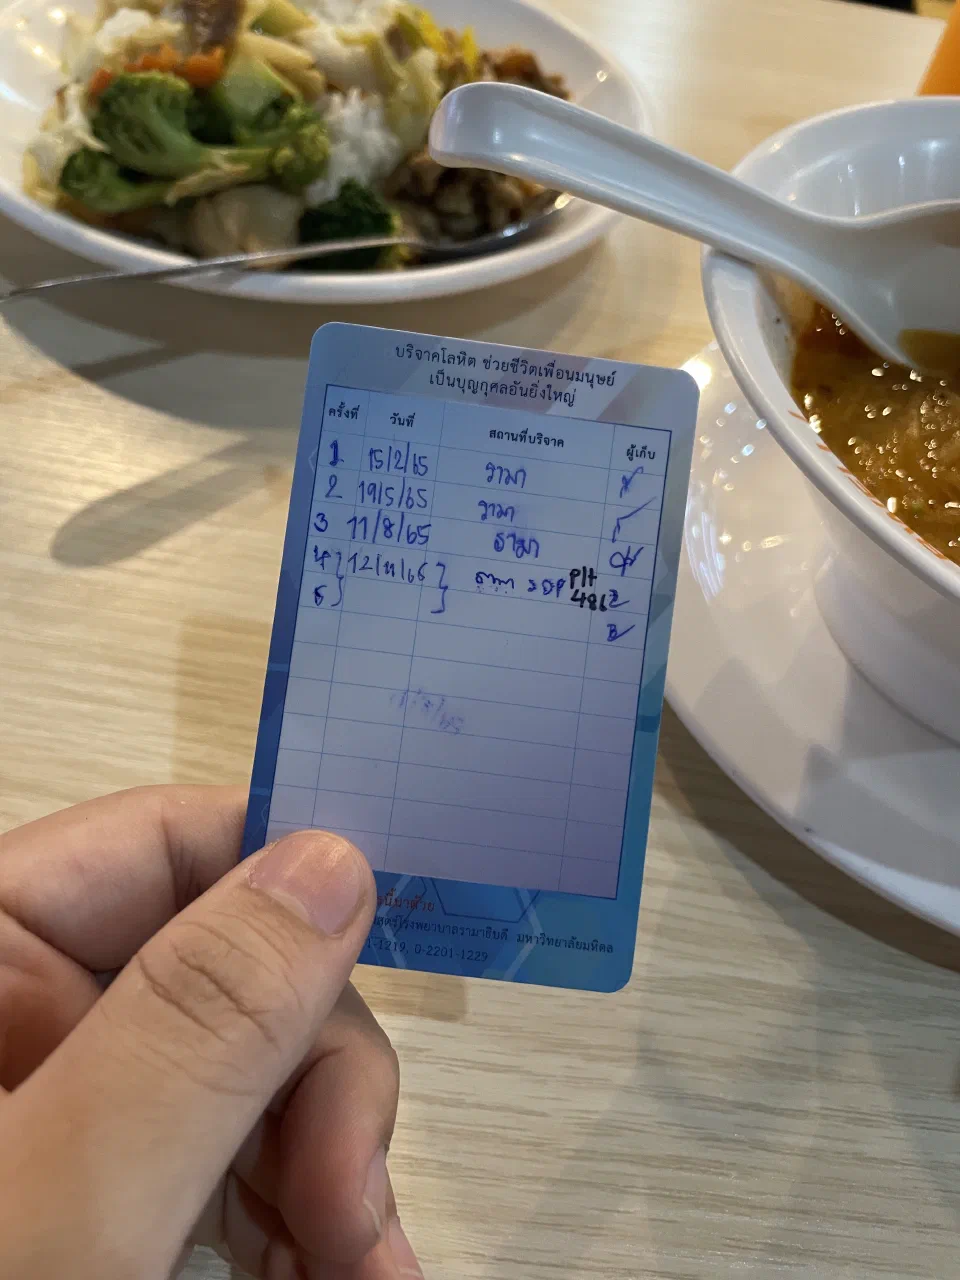 บริจาคโลหิต ช่วยชีวิตเพื่อนมนุษย์
เป็นบุญกุศลอันยิ่งใหญ่
ครั้งที่ วันที่ สถานที่บริจาค ผู้เก็บ
1 15/2/65 รามา
2 19/5/65 รามา
3 11/8/65 รามา
4 12/11/65 รามา SDP Plt
5 486
นี้มาด้วย
โรงพยาบาลรามาธิบดี มหาวิทยาลัยมหิดล
1-1219, 0-2201-1229